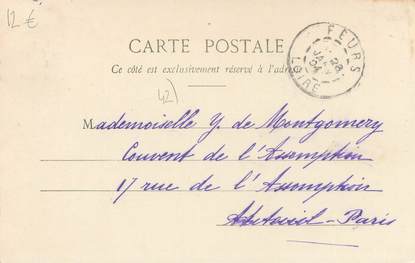 12 €
CARTE POSTALE
Ce côté est exclusivement réservé à l'adresse
FEURS
28
JANV
04
LOIRE
42)
Mademoiselle Y. de Montgomery
Couvent de l'Assomption
17 rue de l'Assomption
Auteuil - Paris